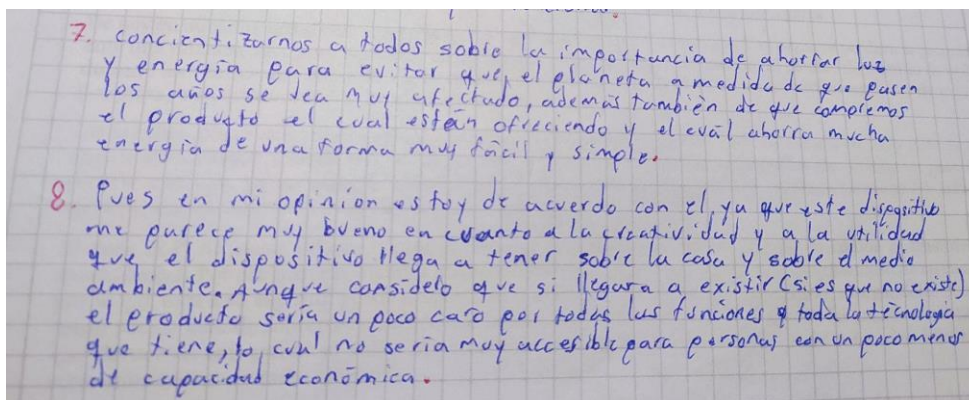 7. concientizarnos a todos sobre la importancia de ahorrar luz
y energía para evitar que, el planeta a medida de que pasen
los años se vea muy afectado, además también de que compremos
el producto el cual están ofreciendo y el cuál ahorra mucha
energía de una forma muy fácil y simple.
8. Pues en mi opinión estoy de acuerdo con el, ya que este dispositivo
me parece muy bueno en cuanto a la creatividad y a la utilidad
que el dispositivo llega a tener sobre la casa y sobre el medio
ambiente. Aunque considero que si llegara a existir (si es que no existe)
el producto sería un poco caro por todas las funciones y toda la tecnología
que tiene, lo cual no seria muy accesible para personas con un poco menos
de capacidad económica.